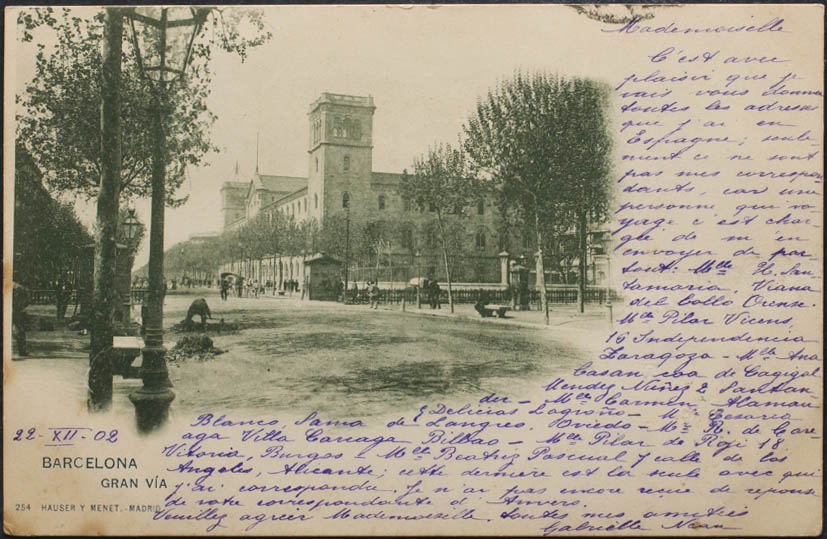 Mademoiselle
C'est avec
plaisir que je
vais vous donner
toutes les adresses
que j'ai en
Espagne; seule-
ment ce ne sont
pas mes correspon-
dants, car une
personne qui vo-
yage c'est char-
gée de m'en
envoyer de par-
tout. Mlle H. San-
tamaria, Viana
del Bollo Orense.
Mlle Pilar Vicens,
16 Independencia
Zaragoza - Mlle Ana
Casan, coa de Gagigal
Mendez Nuñez 2, Santan-
der - Mlle Carmen Alamau
8 Delicias Logroño - Mlle Cesarea
Blanco, Sama de Langreo, Oviedo - Mlle R. de Care-
aga Villa Careaga Bilbao - Mlle Pilar de Roji 18
Vitoria, Burgos - Mlle Beatriz Pascual y calle de los
Angeles, Alicante; cette dernière est la seule avec qui
j'ai correspondu. Je n'ai pas encore reçue de reponse
de votre correspondante d'Anvers.
Veuillez agréer Mademoiselle, toutes mes amitiés
Gabrielle
22-XII-02
BARCELONA
GRAN VÍA
254 HAUSER Y MENET.-MADRID